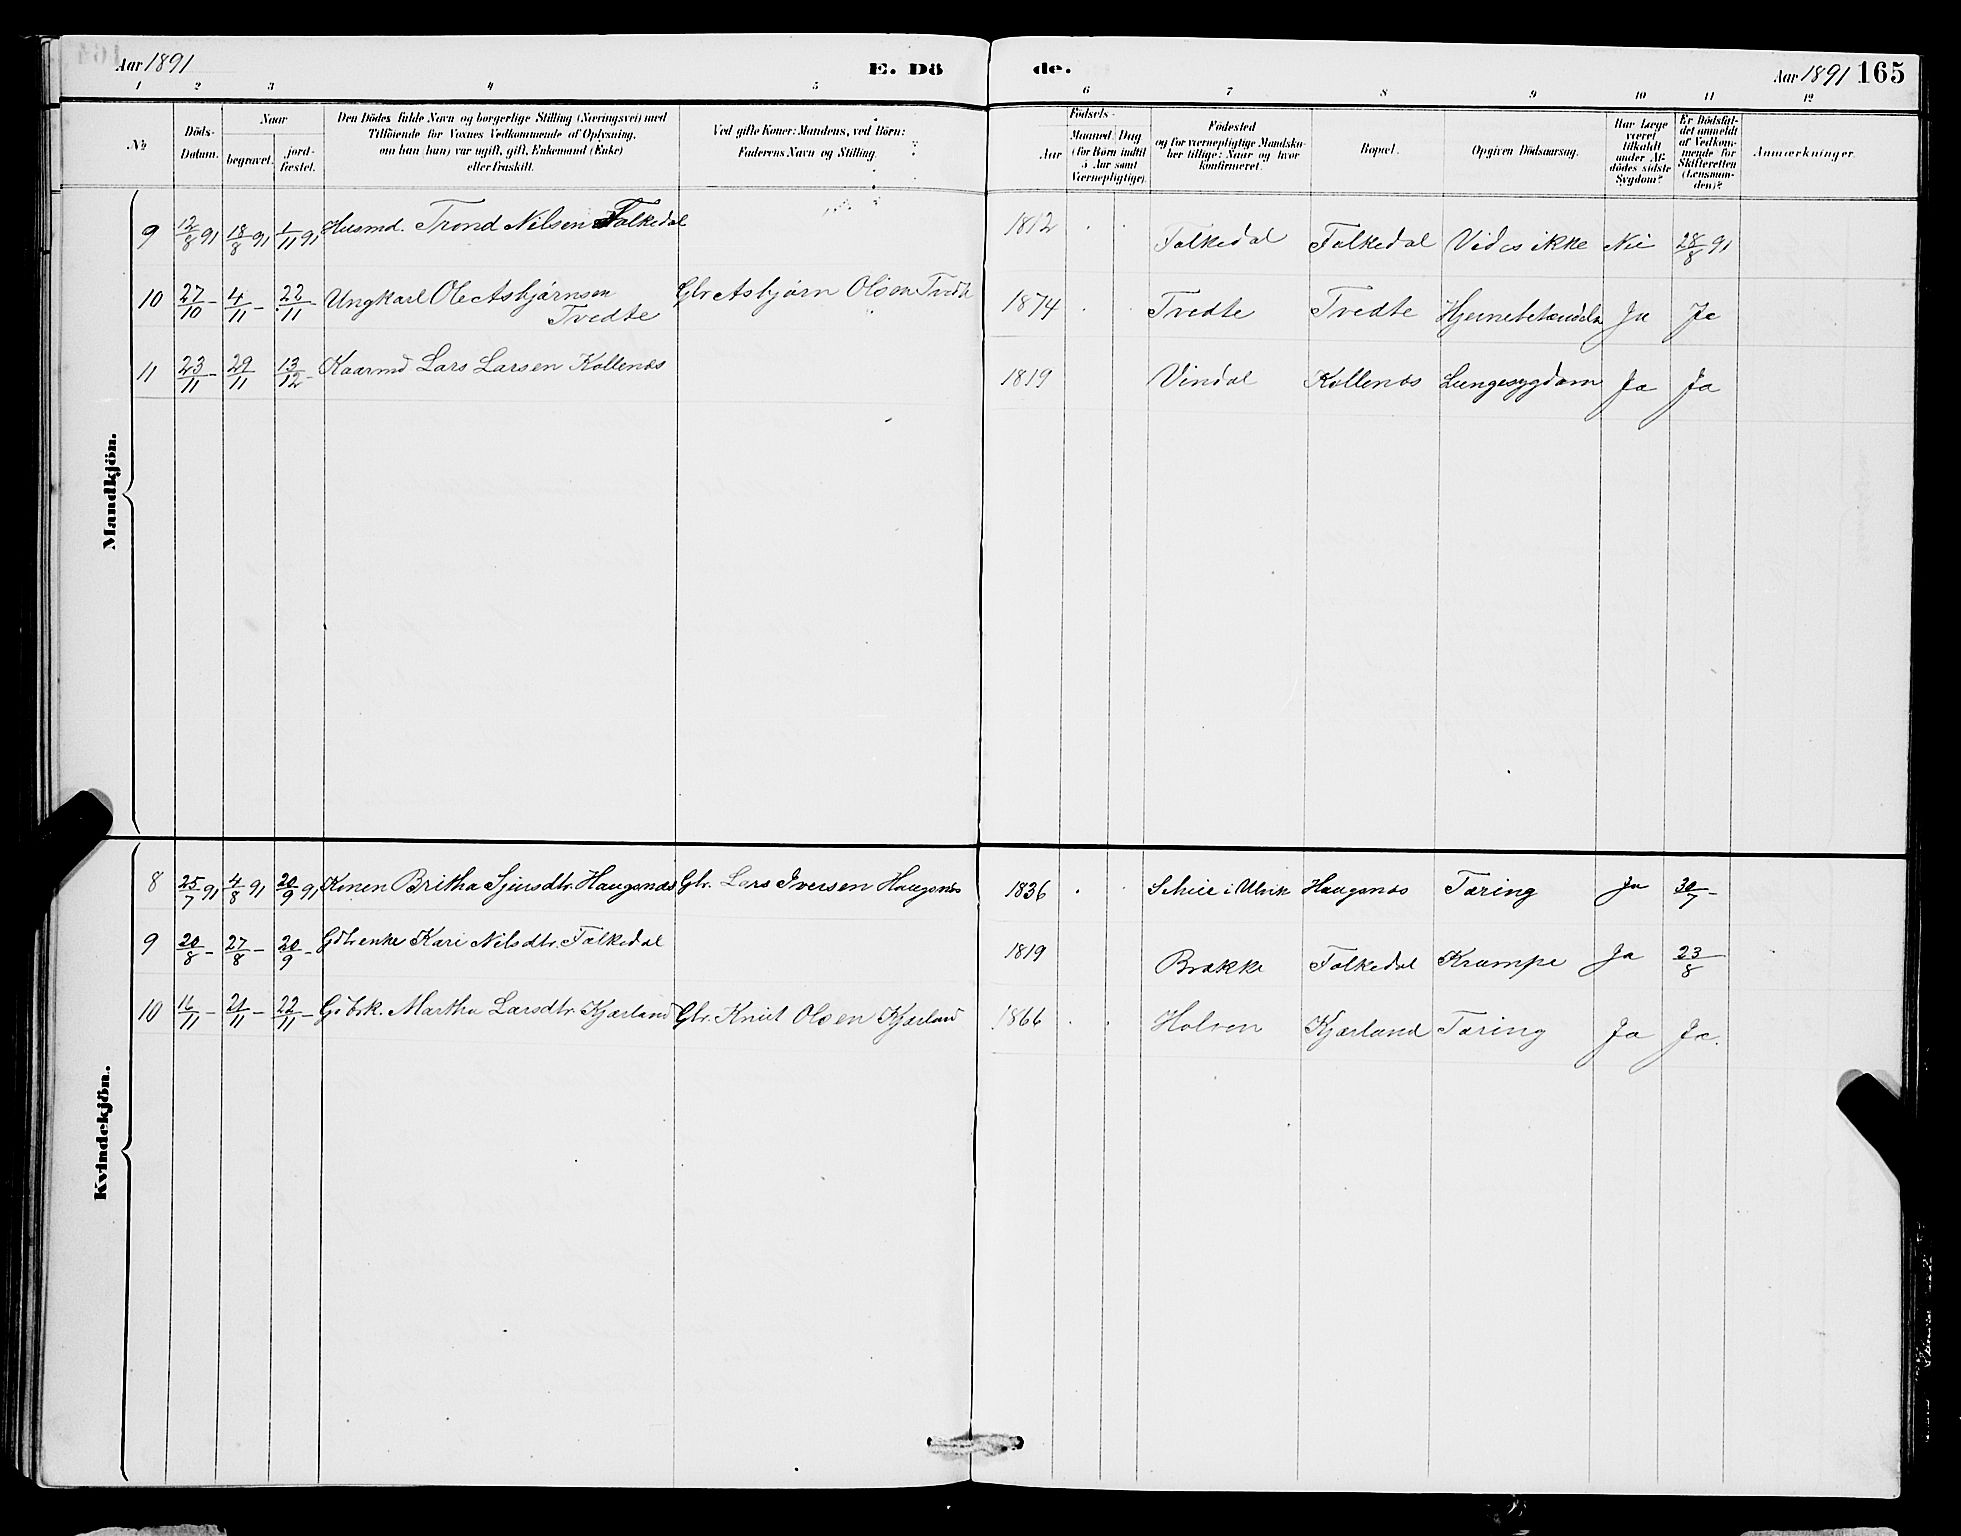 Aar 1891
E. Dö
de.
Aar 1891 165
1 2 3 4 5 6 7 8 9 10 11 12
№
Döds-
Datum.
Naar
begravet.
jord-
fæstet.
Den Dödes fulde Navn og borgerlige Stilling (Næringsvei) med
Tilföiende for Voxnes Vedkommende af Oplysning,
om han (hun) var ugift, gift, Enkemand (Enke)
eller fraskilt.
Ved gifte Koner: Mandens, ved Börn:
Faderens Navn og Stilling.
Födsels-
Aar
Maaned
Dag
(for Börn indtil
5 Aar samt
Værnepligtige).
Födested
og for værnepligtige Mandska-
ber tillige: Naar og hvor
konfirmeret.
Bopæl.
Opgiven Dödsaarsag.
Har Læge
været
tilkaldt
under Af-
dödes sidste
Sygdom?
Er Dödsfal-
det anmeldt
af Vedkom-
mende for
Skifteretten
(Lensman-
den)?
Anmærkninger.
Mandkjön.
9 12/8 91 18/8 91 1/11 91 Husmd. Trond Nilsen Folkedal 1812 Folkedal Folkedal Vides ikke Nei 28/8 91
10 27/10 - 4/11 - 22/11 - Ungkarl Ole Asbjørnsen
Tvedte
Gbr Asbjørn Olsen Tvedte 1874 Tvedte Tvedte Hjernebetændelse Ja Ja
11 23/11 - 29/11 13/12 - Kaarmd Lars Larsen Kollenæs 1819 Vindal Kollenæs Lungesygdom Ja Ja
Kvindekjön.
8 25/7 91 4/8 91 20/9 91 Konen Britha Sjursdtr. Haugsnæs Gbr. Lars Iversen Haugsnæs 1836 i Ulvik Haugsnæs Tæring Ja 30/7 -
9 20/8 - 27/8 - 20/9 - Kari Nilsdtr. Folkedal 1819 Brække Folkedal Krampe Ja 23/8
10 16/11 - 21/11 - 22/11 - Martha Larsdtr. Kjærland Gbr. Knut Olsen Kjærland 1866 Holven Kjærland Tæring Ja Ja.